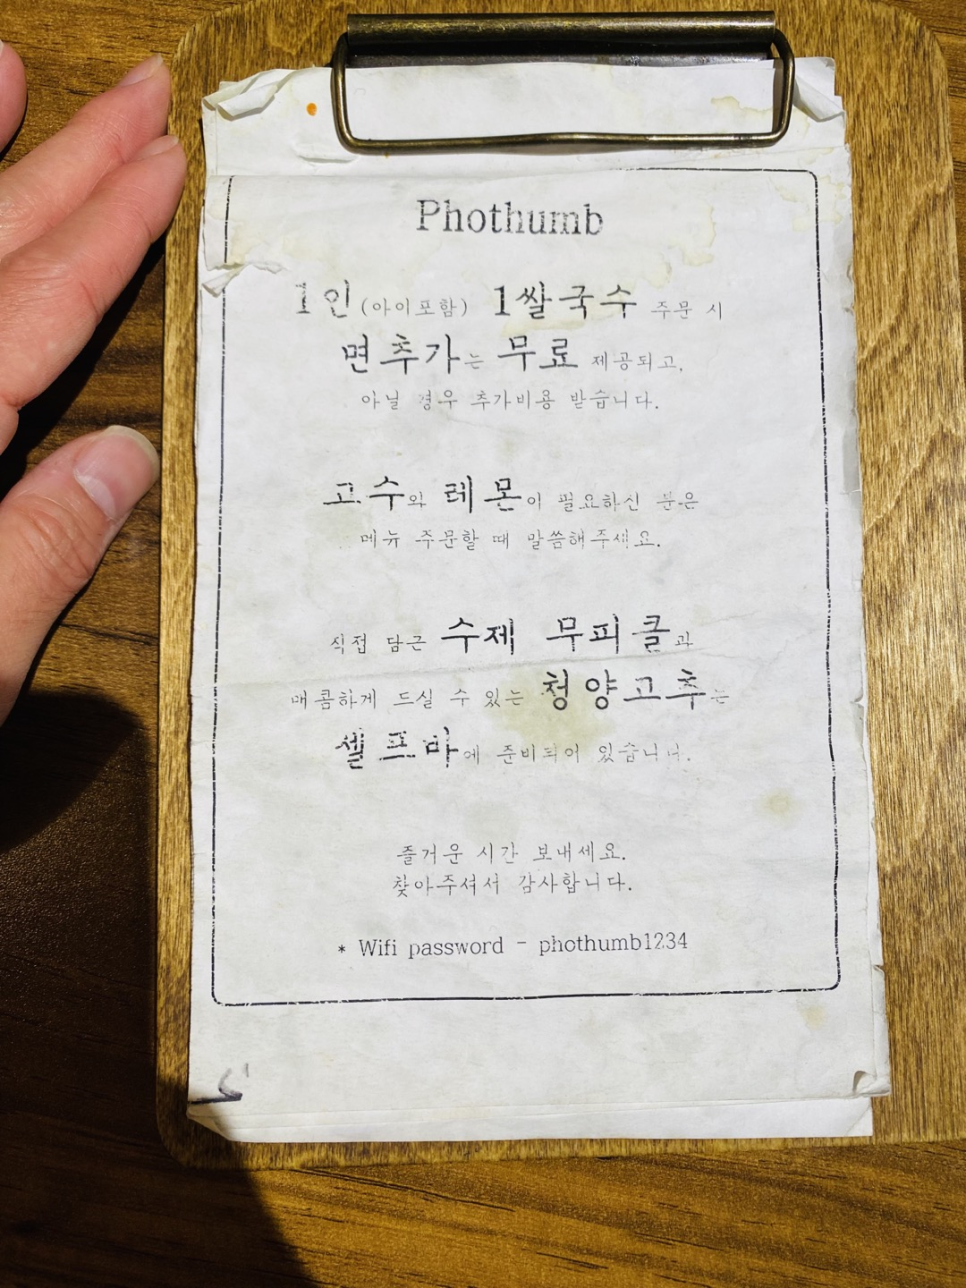 Phothumb
1인(아이포함) 1쌀국수 주문 시
면추가는 무료 제공되고,
아닐 경우 추가비용 받습니다.
고수와 레몬이 필요하신 분은
메뉴 주문할 때 말씀해주세요.
직접 담근 수제 무피클과
매콤하게 드실 수 있는 청양고추는
셀프바에 준비되어 있습니다.
즐거운 시간 보내세요.
찾아주셔서 감사합니다.
* Wifi password - phothumb1234